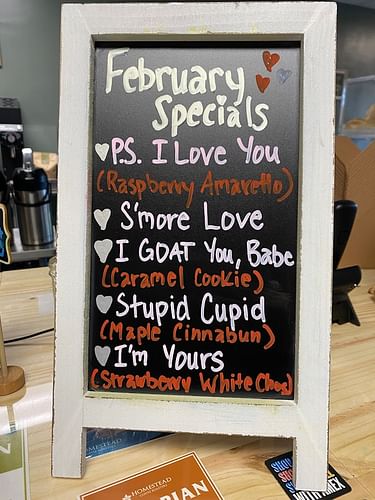 February
Specials
P.S. I Love You
(Raspberry Amaretto)
S'more Love
I GOAT You, Babe
(Caramel Cookie)
Stupid Cupid
(Maple Cinnabun)
I'm Yours
(Strawberry White Choc)
HOMESTEAD
HOMESTEAD